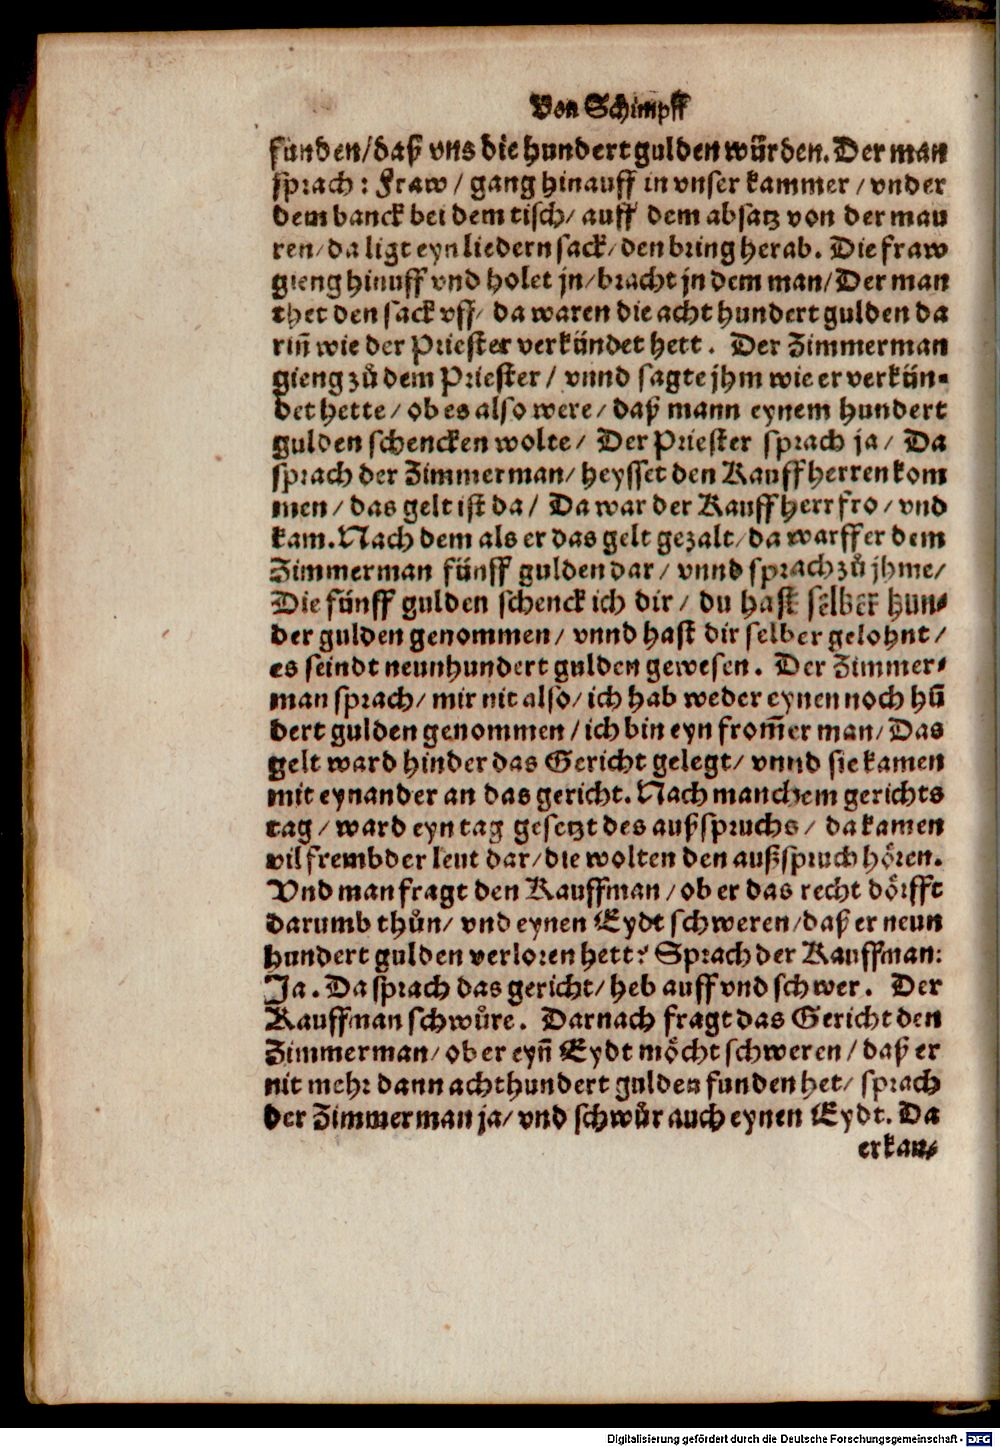 Von Schimpff
funden/daß vns die hundert gulden würden. Der man
sprach: Fraw / gang hinauff in vnser kammer / vnder
dem banck bei dem tisch/ auff dem absatz von der mau
ren/ da ligt eyn liedern sack/ den bring herab. Die fraw
gieng hinuff vnd holet jn/ bracht jn dem man/ Der man
thet den sack vff/ da waren die acht hundert gulden da
rin̄ wie der Priester verkündet hett. Der Zimmerman
gieng zů dem Priester / vnnd sagte jhm wie er verkün-
det hette/ ob es also were/ daß mann eynem hundert
gulden schencken wolte/ Der Priester sprach ja/ Da
sprach der Zimmerman/ heysset den Kauffherren kom
men / das gelt ist da/ Da war der Kauffherr fro / vnd
kam. Nach dem als er das gelt gezalt/ da warff er dem
Zimmerman fünff gulden dar/ vnnd sprach zů jhme/
Die fünff gulden schenck ich dir/ du hast selber hun-
der gulden genommen/ vnnd hast dir selber gelohnt/
es seindt neunhundert gulden gewesen. Der Zimmer-
man sprach/ mir nit also/ ich hab weder eynen noch hū
dert gulden genommen / ich bin eyn from̄er man/ Das
gelt ward hinder das Gericht gelegt/ vnnd sie kamen
mit eynander an das gericht. Nach manchem gerichts
tag/ ward eyn tag gesetzt des außspruchs/ da kamen
vil frembder leut dar/ die wolten den außspruch hören.
Vnd man fragt den Kauffman/ ob er das recht dörfft
darumb thůn/ vnd eynen Eydt schweren/daß er neun
hundert gulden verloren hett? Sprach der Kauffman:
Ja. Da sprach das gericht/ heb auff vnd schwer. Der
Kauffman schwůre. Darnach fragt das Gericht den
Zimmerman/ ob er eyn̄ Eydt möcht schweren/ daß er
nit mehr dann achthundert gulden funden het/ sprach
der Zimmerman ja/ vnd schwůr auch eynen Eydt. Da
erkan-
Digitalisierung gefördert durch die Deutsche Forschungsgemeinschaft - DFG